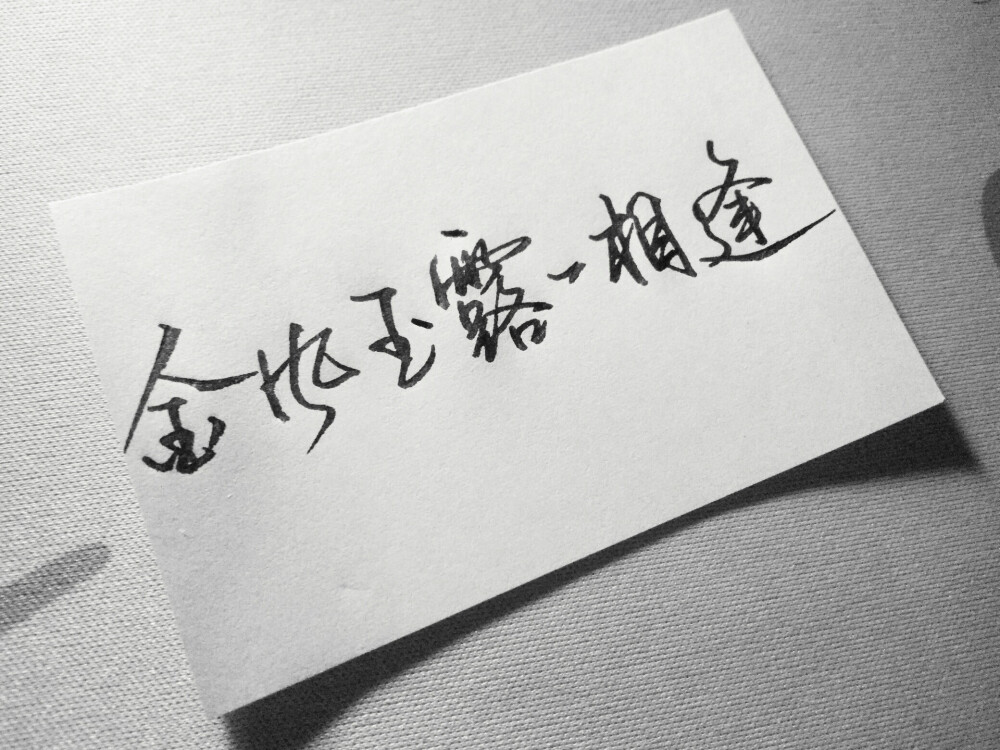 金风玉露一相逢